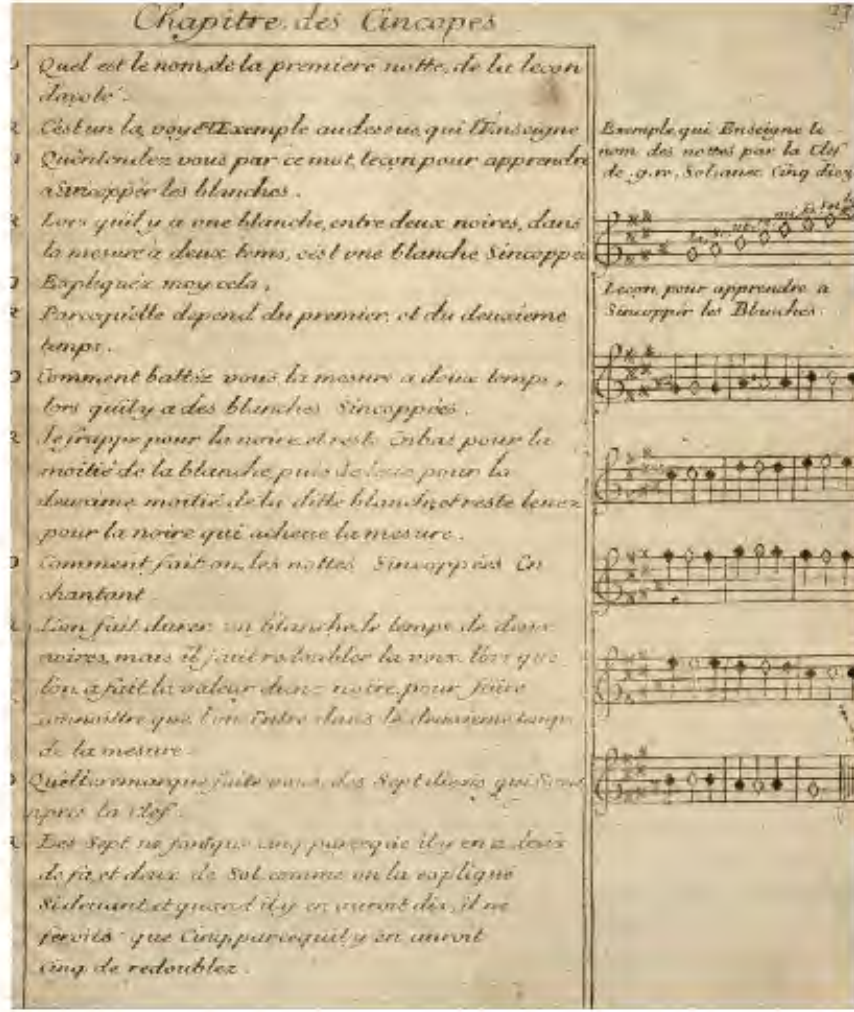 Chapitre des Cincopes
27
D Quel est le nom, de la premiere notte, de la lecon
dacote.
R C'est un la, voyé l'Exemple audessus, qui l'Enseigne
D Quèntendez vous par ce mot, lecon pour apprendre
a Sincoppér les blanches.
R Lors quil y a une blanche, entre deux noires, dans
la mesure à deux tems, cést une blanche Sincoppé
D Expliquéz moy cela,
R Parcequélle dépend du premier, et du deuxieme
temps.
D Comment battéz vous la mesure a deux temps,
lors quil y a des blanches Sincoppées.
R Je frappe pour la noire, et reste Enbas pour la
moitié de la blanche puis Je leve pour la
deuxiéme moitié de la ditte blanche, et reste levez
pour la noire qui acheve la mesure.
D Comment fait on, les nottes Sincoppées En
chantant
R L'on fait durer un blanche, le temps de deux
noires, mais il faut redoubler la voix lors que
l'on a fait la valeur dune noire, pour faire
connoittre que l'on Entre dans le deuxieme temps
de la mesure.
D Quélle remarque faite vous, des Sept diezis qui Sont
apres la Clef.
R Les Sept ne font que cinq parceque il y en a deux
de fa, et deux de Sol comme on la expliqué
Si devant et quand il y en auroit dix, il ne
feroits que Cinq, parcequil y en auroit
Cinq de redoublez.
Exemple, qui Enseigne le
nom des nottes par la Clef
de .g.re. Sol avec Cinq diez
Lecon, pour apprendre a
Sincoppér les Blanches.